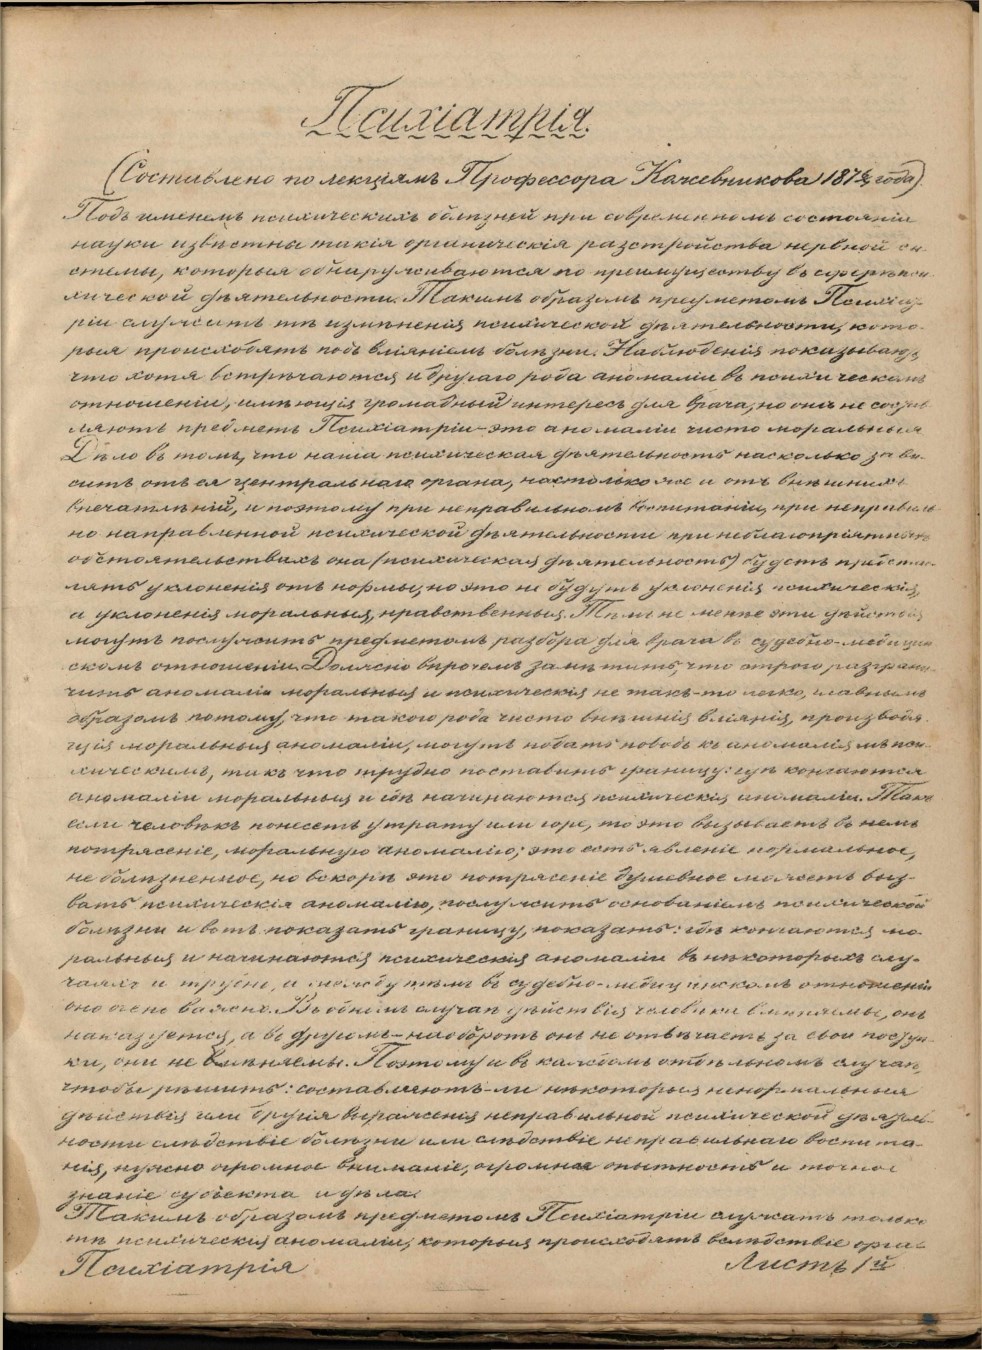 Психіатрія.
(Составлено по лекціямъ Профессора Кожевникова 187⅘ года)
Подъ именемъ психическихъ болѣзней при современномъ состояніи
науки извѣстны такія органическія разстройства нервной си-
стемы, которыя обнаруживаются по преимуществу въ сферѣ пси-
хической дѣятельности. Такимъ образомъ предметомъ Психіат-
ріи служитъ тѣ измѣненія психической дѣятельности, кото-
рыя происходятъ подъ вліяніемъ болѣзни. Наблюденія показываютъ,
что хотя встрѣчаются и другаго рода аномаліи въ психическомъ
отношеніи, имѣющія громадный интересъ для врача, но онѣ не состав-
ляютъ предметъ Психіатріи – это аномаліи чисто моральныя
Дѣло въ томъ, что наша психическая дѣятельность насколько зави-
ситъ отъ ея центральнаго органа, настолько же и отъ внѣшнихъ
впечатлѣній, и поэтому при неправильномъ воспитаніи, при неправиль-
но направленной психической дѣятельности при неблагопріятныхъ
обстоятельствахъ она (психическая дѣятельность) будетъ представ-
лять уклоненія отъ нормы, но это не будутъ уклоненія психическія,
а уклоненія моральныя, нравственныя. Тѣмъ не менѣе эти дѣйствія
могутъ послужить предметомъ разбора для врача въ судебно-медицин-
скомъ отношеніи. Должно впрочемъ замѣтить, что строго разграни-
чить аномаліи моральныя и психическія не такъ-то легко, главнымъ
образомъ потому, что такого рода чисто внѣшнія вліянія, производя-
щія моральныя аномаліи, могутъ подать поводъ къ аномаліямъ пси-
хическимъ, такъ что трудно поставить границу: гдѣ кончаются
аномаліи моральныя и гдѣ начинаются психическія аномаліи. Такъ
если человѣкъ понесетъ утрату или горе, то это вызываетъ въ немъ
потрясеніе, моральную аномалію; это есть явленіе нормальное,
не болѣзненное, но вскорѣ это потрясеніе душевное можетъ выз-
вать психическія аномалію, послужить основаніемъ психической
болѣзни и вотъ показать границу, показать: гдѣ кончаются мо-
ральныя и начинаются психическія аномаліи въ нѣкоторыхъ слу-
чаяхъ и трудно, а между тѣмъ въ судебно-медицинскомъ отношеніи
оно очень важно. Въ одномъ случаѣ дѣйствія человѣка вмѣняемы, онъ
наказуется, а въ другомъ – наоборотъ онъ не отвѣчаетъ за свои поступ-
ки, они не вмѣняемы. Поэтому и въ каждомъ отдѣльномъ случаѣ,
чтобы рѣшить: составляютъ-ли нѣкоторыя ненормальныя
дѣйствія или другія выраженія неправильной психической дѣятель-
ности слѣдствіе болѣзни или слѣдствіе неправильнаго воспита-
нія, нужно огромное вниманіе, огромная опытность и точное
знаніе субъекта и дѣла.
Такимъ образомъ предметомъ Психіатріи служатъ только
тѣ психическія аномаліи, которыя происходятъ вслѣдствіе орга-
Психіатрія
Листъ 1й